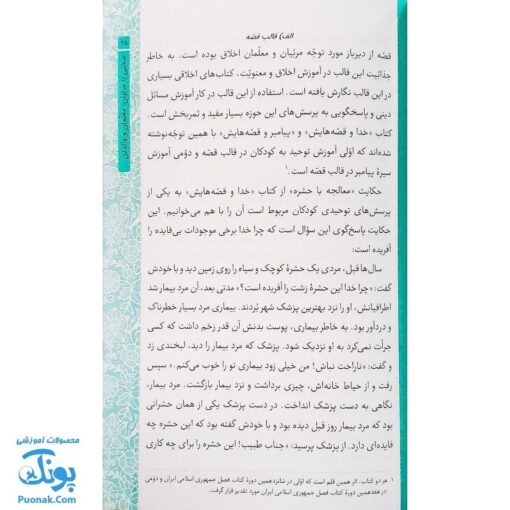 الف) قالب قصّه
قصّه از دیرباز مورد توجّه مربّیان و معلّمان اخلاق بوده است. به خاطر
جذابیت این قالب در آموزش اخلاق و معنویّت، کتاب‌های اخلاقی بسیاری
در این قالب نگارش یافته است. استفاده از این قالب در کار آموزش مسائل
دینی و پاسخگویی به پرسش‌های این حوزه بسیار مفید و ثمربخش است.
کتاب «خدا و قصّه‌هایش» و «پیامبر و قصّه‌هایش» با همین توجّه نوشته
شده‌اند که اوّلی آموزش توحید به کودکان در قالب قصّه و دوّمی آموزش
سیرهٔ پیامبر در قالب قصّه است.۱
حکایت «معالجه با حشره» از کتاب «خدا و قصّه‌هایش» به یکی از
پرسش‌های توحیدی کودکان مربوط است آن را با هم می‌خوانیم. این
حکایت پاسخ‌گوی این سؤال است که چرا خدا برخی موجودات بی‌فایده را
آفریده است:
سال‌ها قبل، مردی یک حشرهٔ کوچک و سیاه را روی زمین دید و با خودش
گفت: «چرا خدا این حشرهٔ زشت را آفریده است؟» مدتی بعد، آن مرد بیمار شد
اطرافیانش، او را نزد بهترین پزشک شهر بُردند. بیماری مرد بسیار خطرناک
و دردآور بود. به خاطر بیماری، پوست بدنش آن قدر زخم داشت که کسی
جرأت نمی‌کرد به او نزدیک شود. پزشک که مرد بیمار را دید، لبخندی زد
و گفت: «ناراحت نباش! من خیلی زود بیماری تو را خوب می‌کنم.» سپس
رفت و از حیاط خانه‌اش، چیزی برداشت و نزد بیمار بازگشت. مرد بیمار،
نگاهی به دست پزشک انداخت. در دست پزشک یکی از همان حشراتی
بود که مرد بیمار روز قبل دیده بود و با خودش گفته بود که این حشره چه
فایده‌ای دارد. از پزشک پرسید: «جناب طبیب! این حشره را برای چه کاری
۱ هر دو کتاب، اثر همین قلم است که اوّلی در شانزدهمین دورهٔ کتاب فصل جمهوری اسلامی ایران و دوّمی
در هفدهمین دورهٔ کتاب فصل جمهوری اسلامی ایران مورد تقدیر قرار گرفت.
سخنی با مربیان، معلمان و والدین
محصولات آموزشی
پونک
Puonak.Com